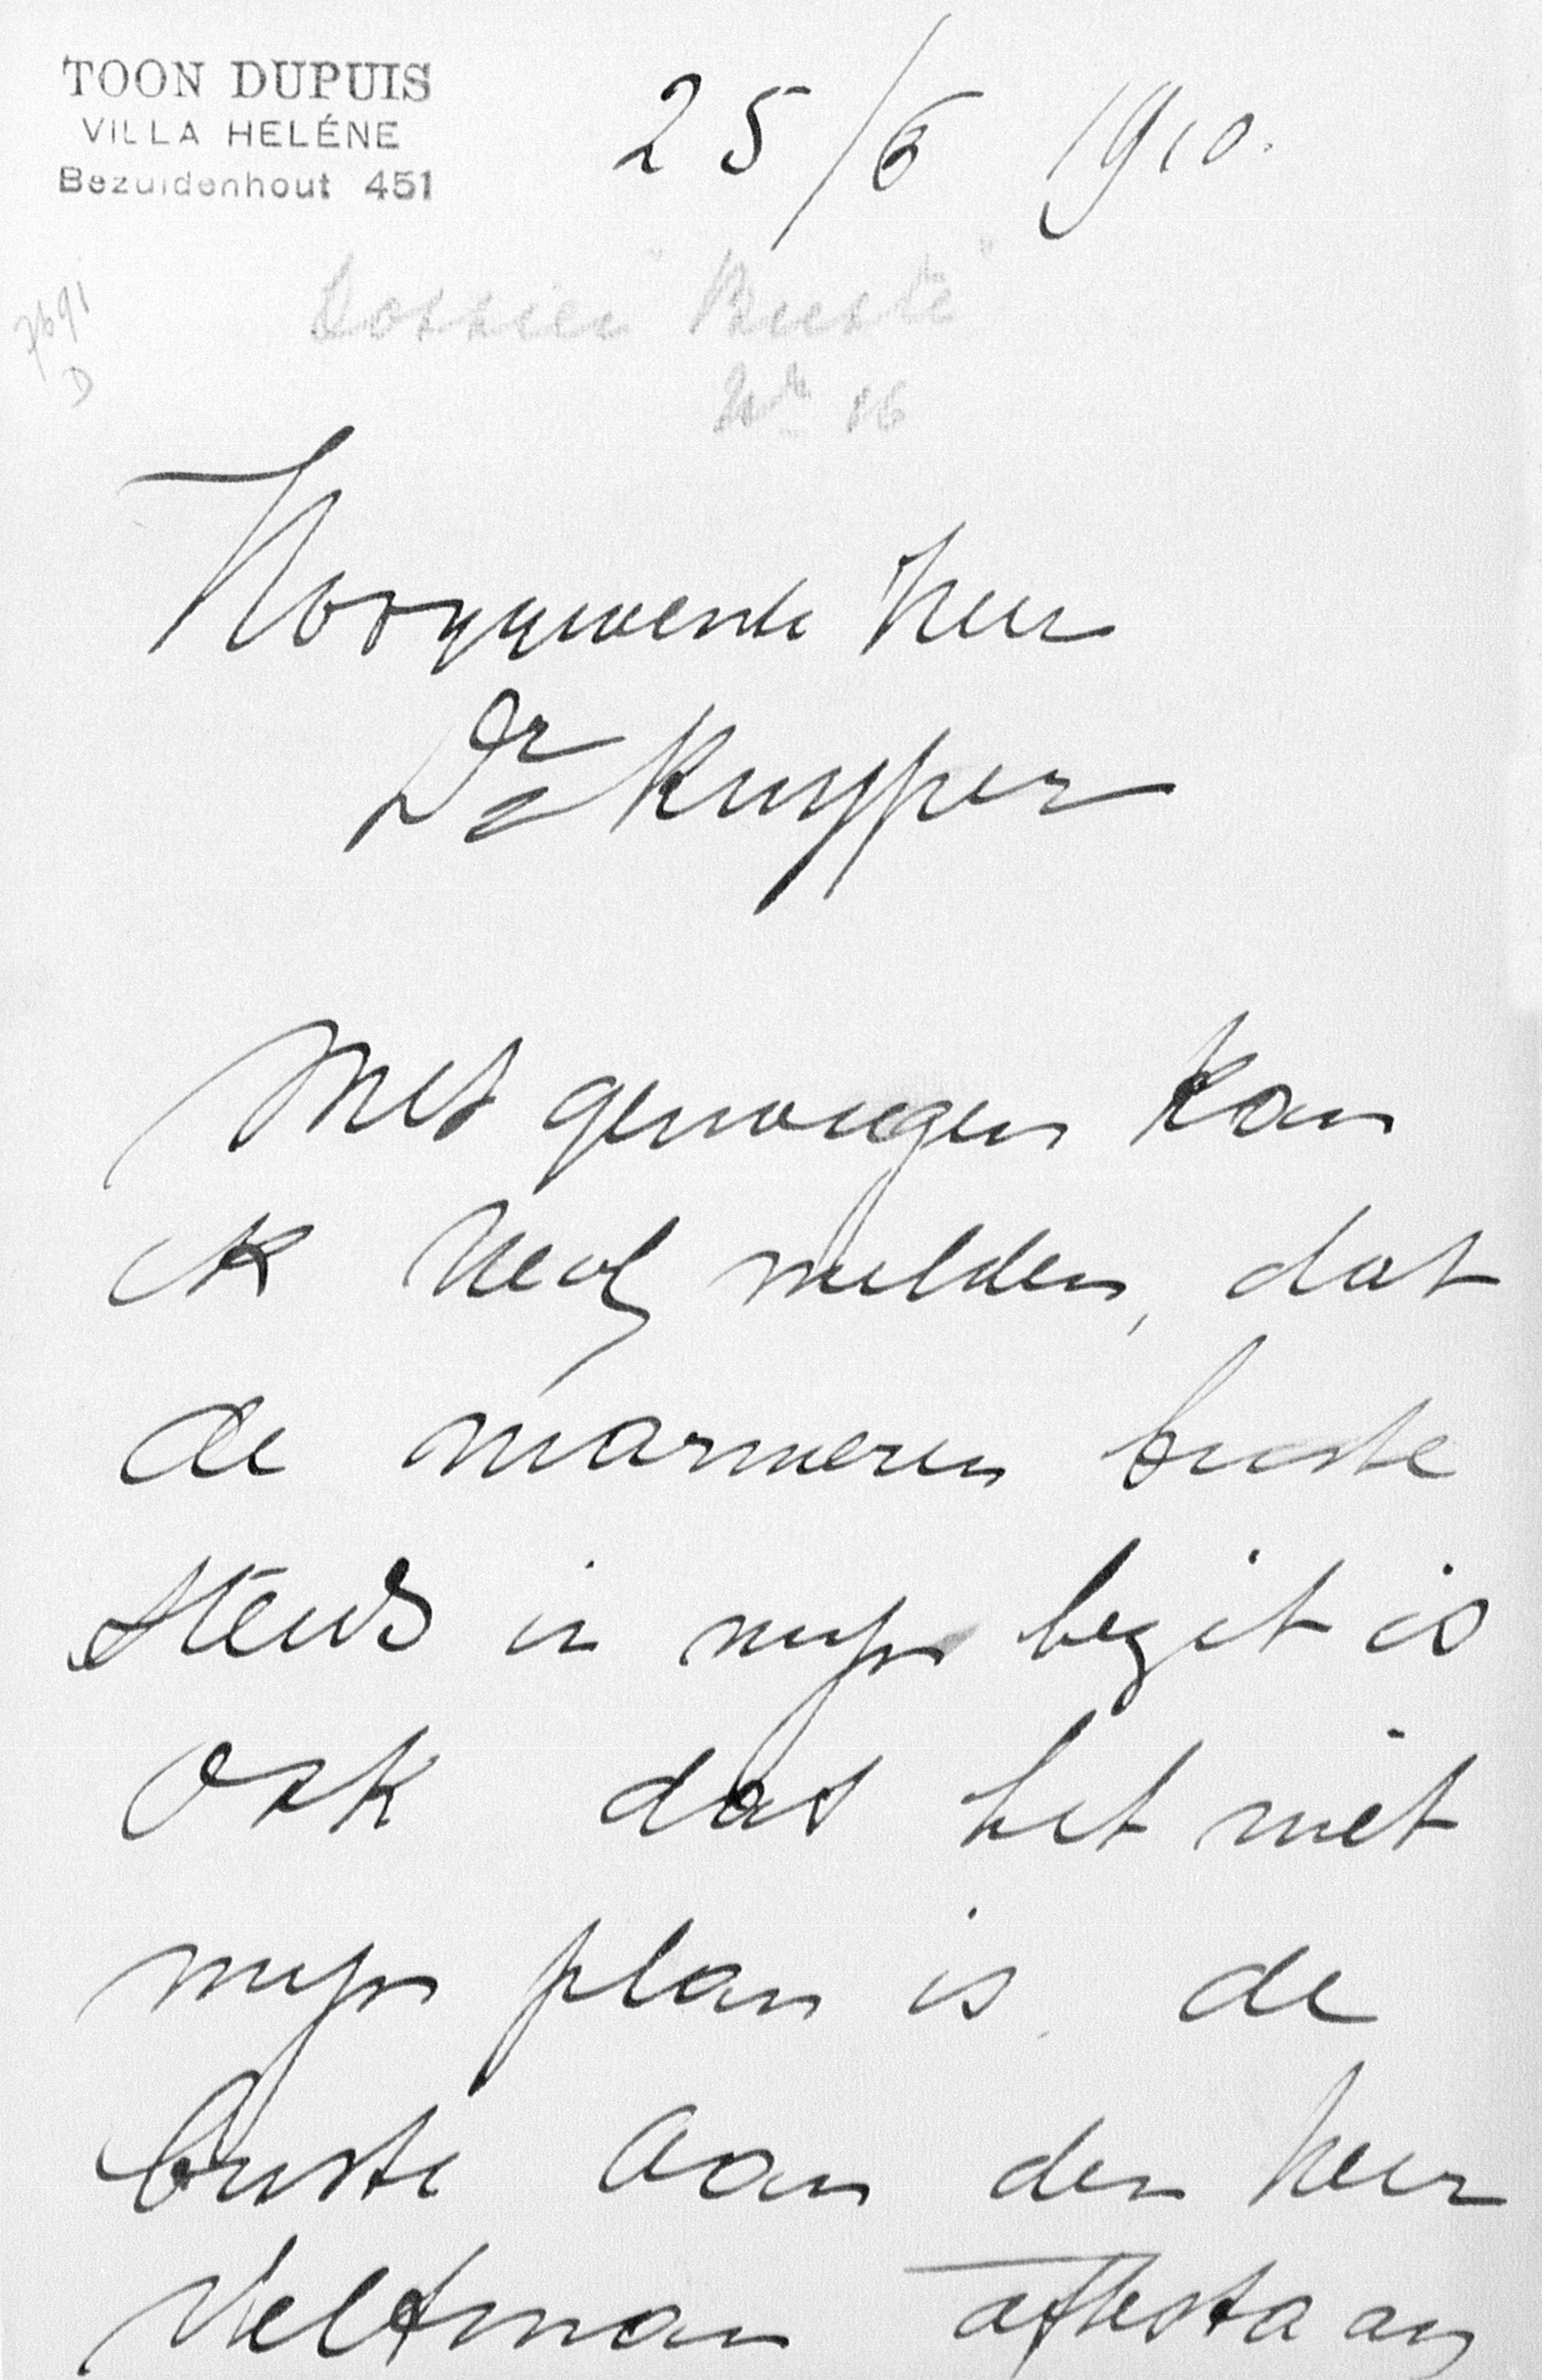 TOON DUPUIS
VILLA HELÉNE
Bezuidenhout 451
25/6 1910.
7691
D
Dossier "Buste"
No 16
Hooggeweste heer
Dr Kuyper
Met genoegen kan
ik Uedl melden, dat
de marmeren buste
steeds in mijn bezit is
ook dat het niet
mijn plan is de
buste aan den heer
Veltman aftestaan